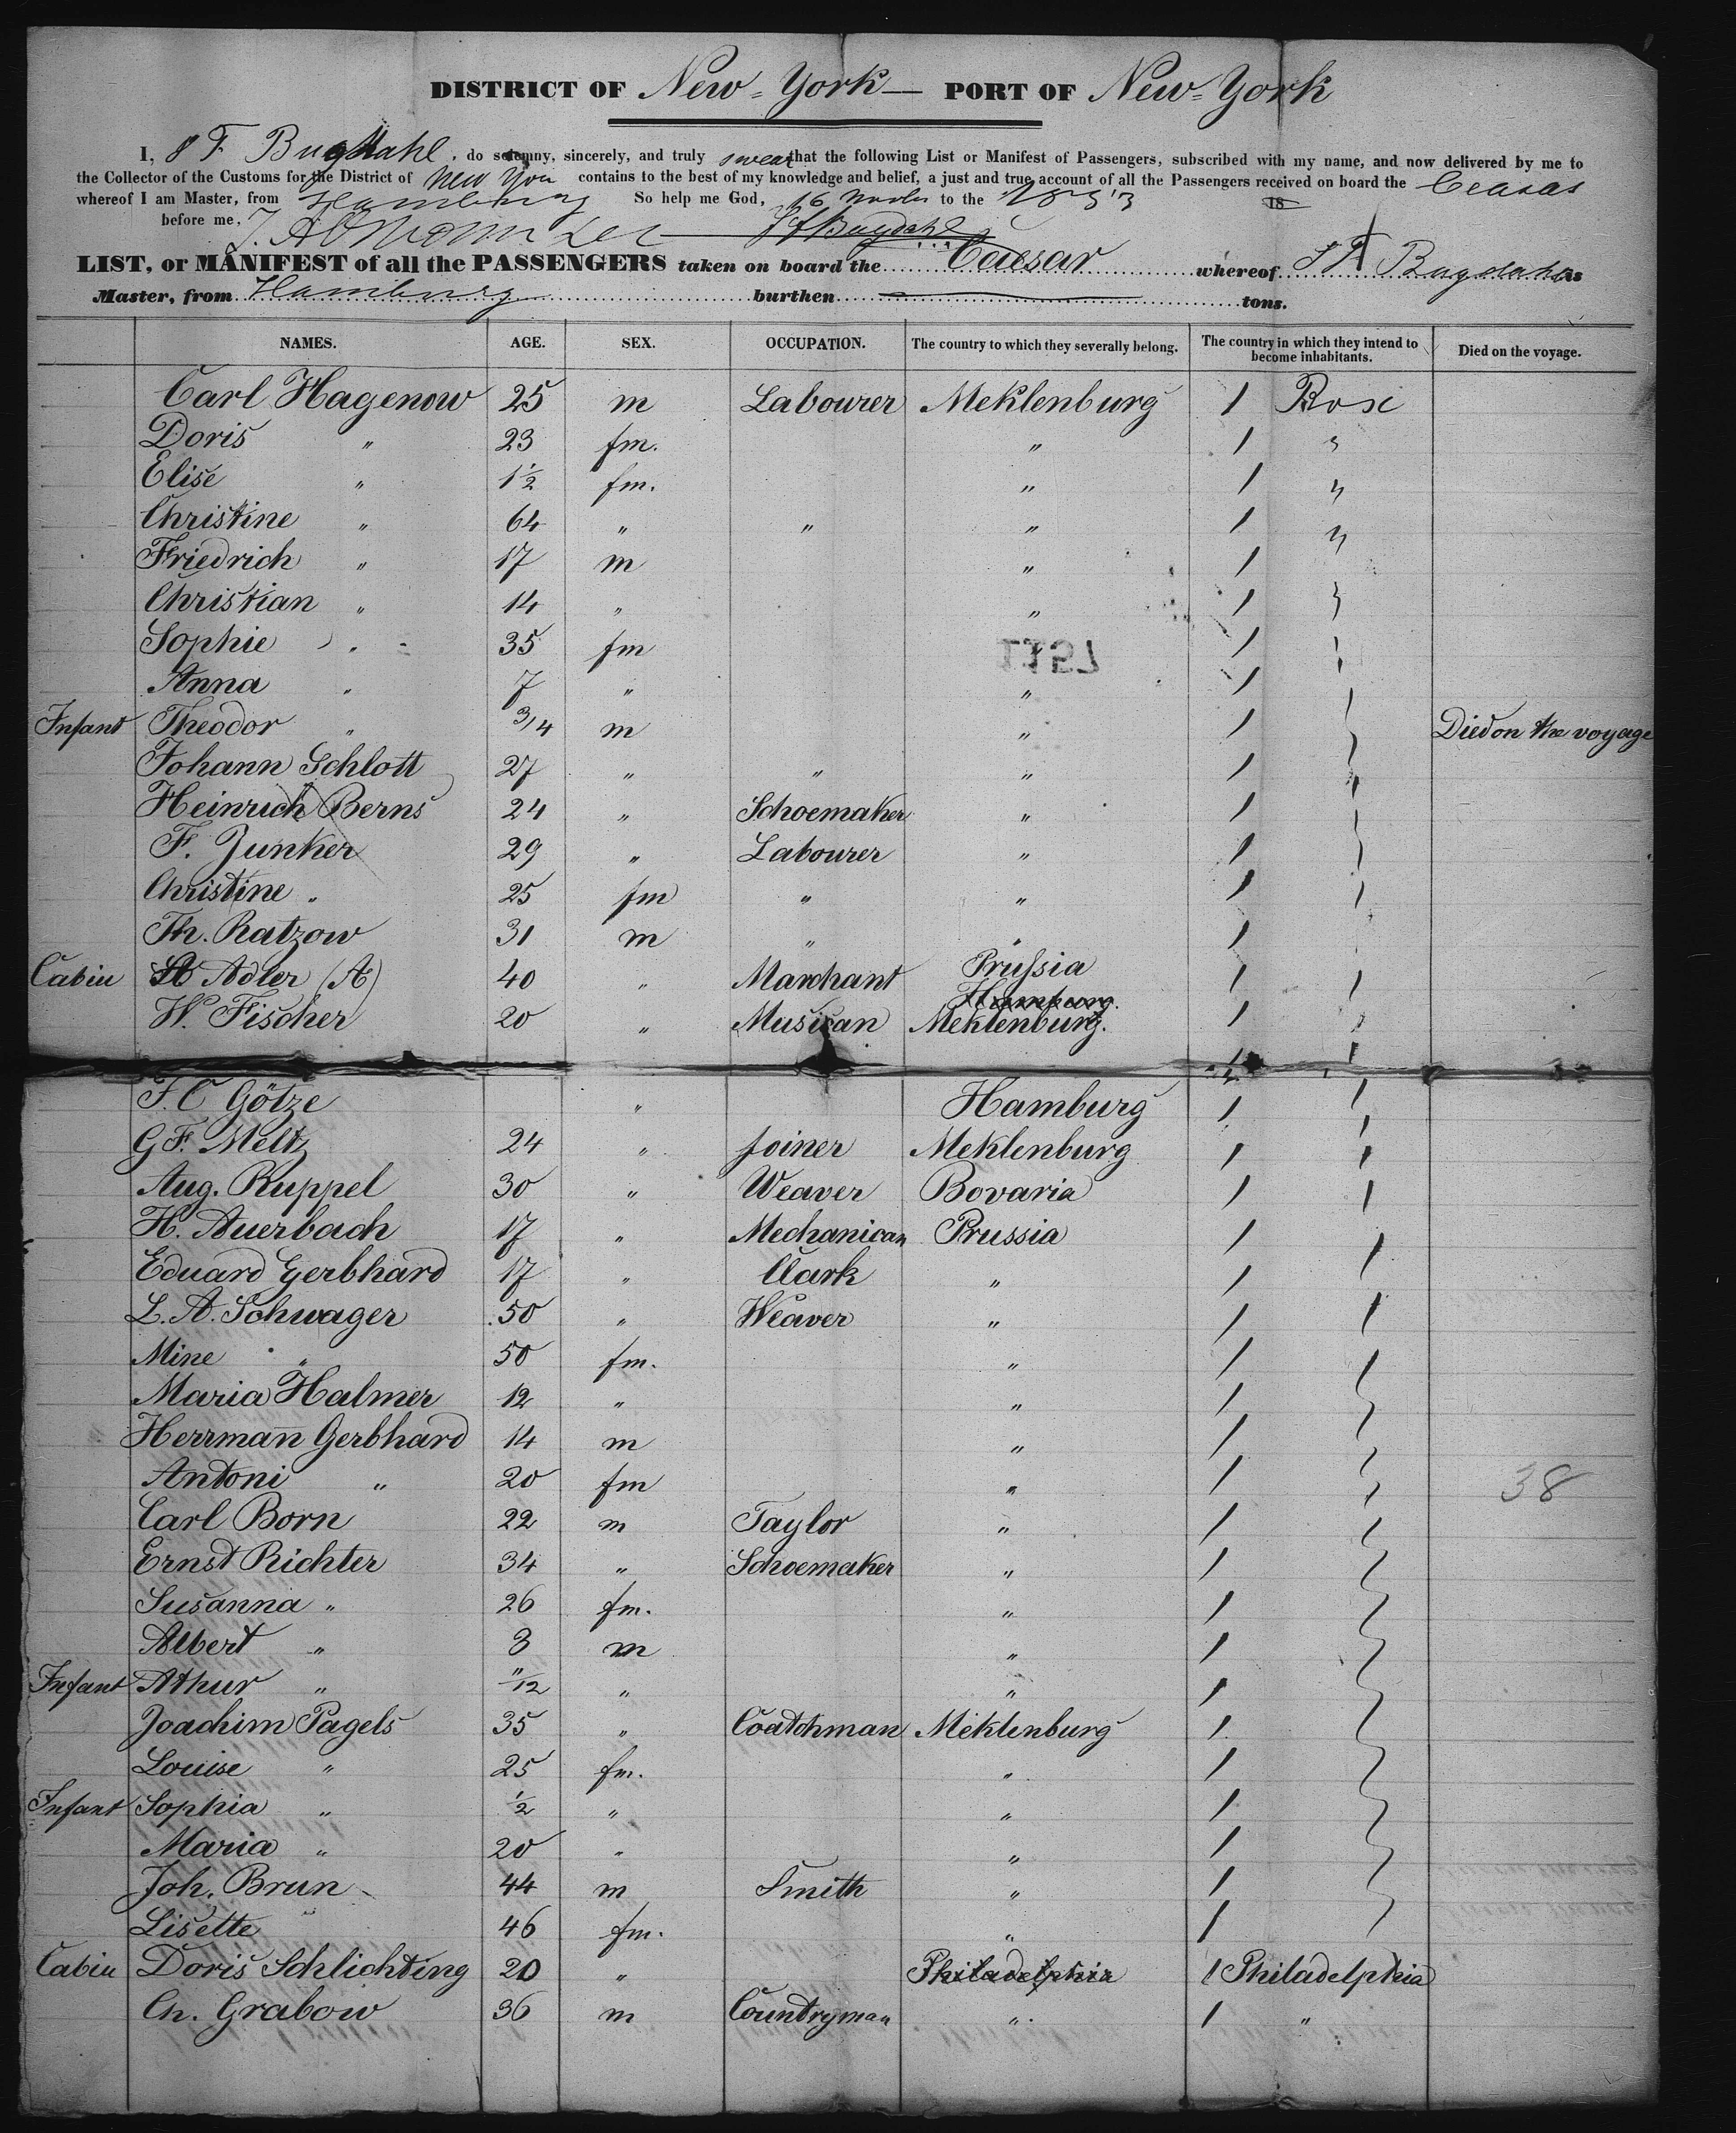 DISTRICT OF New-York— PORT OF New-York
I, F Bugdahl, do solemny, sincerely, and truly swear that the following List or Manifest of Passengers, subscribed with my name, and now delivered by me to
the Collector of the Customs for the District of New York contains to the best of my knowledge and belief, a just and true account of all the Passengers received on board the Ceasar
whereof I am Master, from Hamburg So help me God, 16 to the 1853 18
before me, Bugdahl
LIST, or MANIFEST of all the PASSENGERS taken on board the Caesar whereof Bugdahl is
Master, from Hamburg burthen tons.
NAMES. AGE. SEX. OCCUPATION. The country to which they severally belong. The country in which they intend to become inhabitants. Died on the voyage.
Carl Hagenow 25 m Labourer Meklenburg 1
Doris " 23 fm. " 1 "
Elise " 1½ fm. " 1 "
Christine " 64 " " " 1 "
Friedrich " 17 m " 1
Christian " 14 " " 1
Sophie " 35 fm 1
1157
Anna " 7 " " 1
Infant Theodor " 3/4 m " 1 Died on the voyage
Johann Schlott 27 " " " 1
Heinrich Berns 24 " Schoemaker " 1
F. Junker 29 " Labourer " 1
Christine " 25 fm " " 1
Th. Ratzow 31 m " " 1
Cabin Adler (A) 40 " Marchant Prussia 1
Hamburg.
W. Fischer 20 " Musican Meklenburg. 1
F. C Götze " Hamburg 1
G F. Meltz 24 " Joiner Meklenburg 1
Aug. Ruppel 30 " Weaver Bovaria 1
H. Auerbach 17 " Mechanican Prussia 1
Eduard Gerbhard 17 " Clark " 1
L. A. Schwager 50 " Weaver " 1
Mine " 50 fm. " 1
Maria Halmer 12 " " 1
Herrman Gerbhard 14 m " 1
Antoni " 20 fm " 1 38
Carl Born 22 m Taylor " 1
Ernst Richter 34 " Schoemaker " 1
Susanna " 26 fm. " 1
Albert " 3 m " 1
Infant Athur " 11/12 " " 1
Joachim Pagels 35 " Coatchman Meklenburg 1
Louise " 25 fm. " 1
Infant Sophia " ½ " " 1
Maria " 20 " " 1
Joh. Brun 44 m Smith " 1
Lisette " 46 fm. " 1
Cabin Doris Schlichting 20 " Philadelphia 1 Philadelphia
Ch. Grabow 36 m Countryman " 1 "